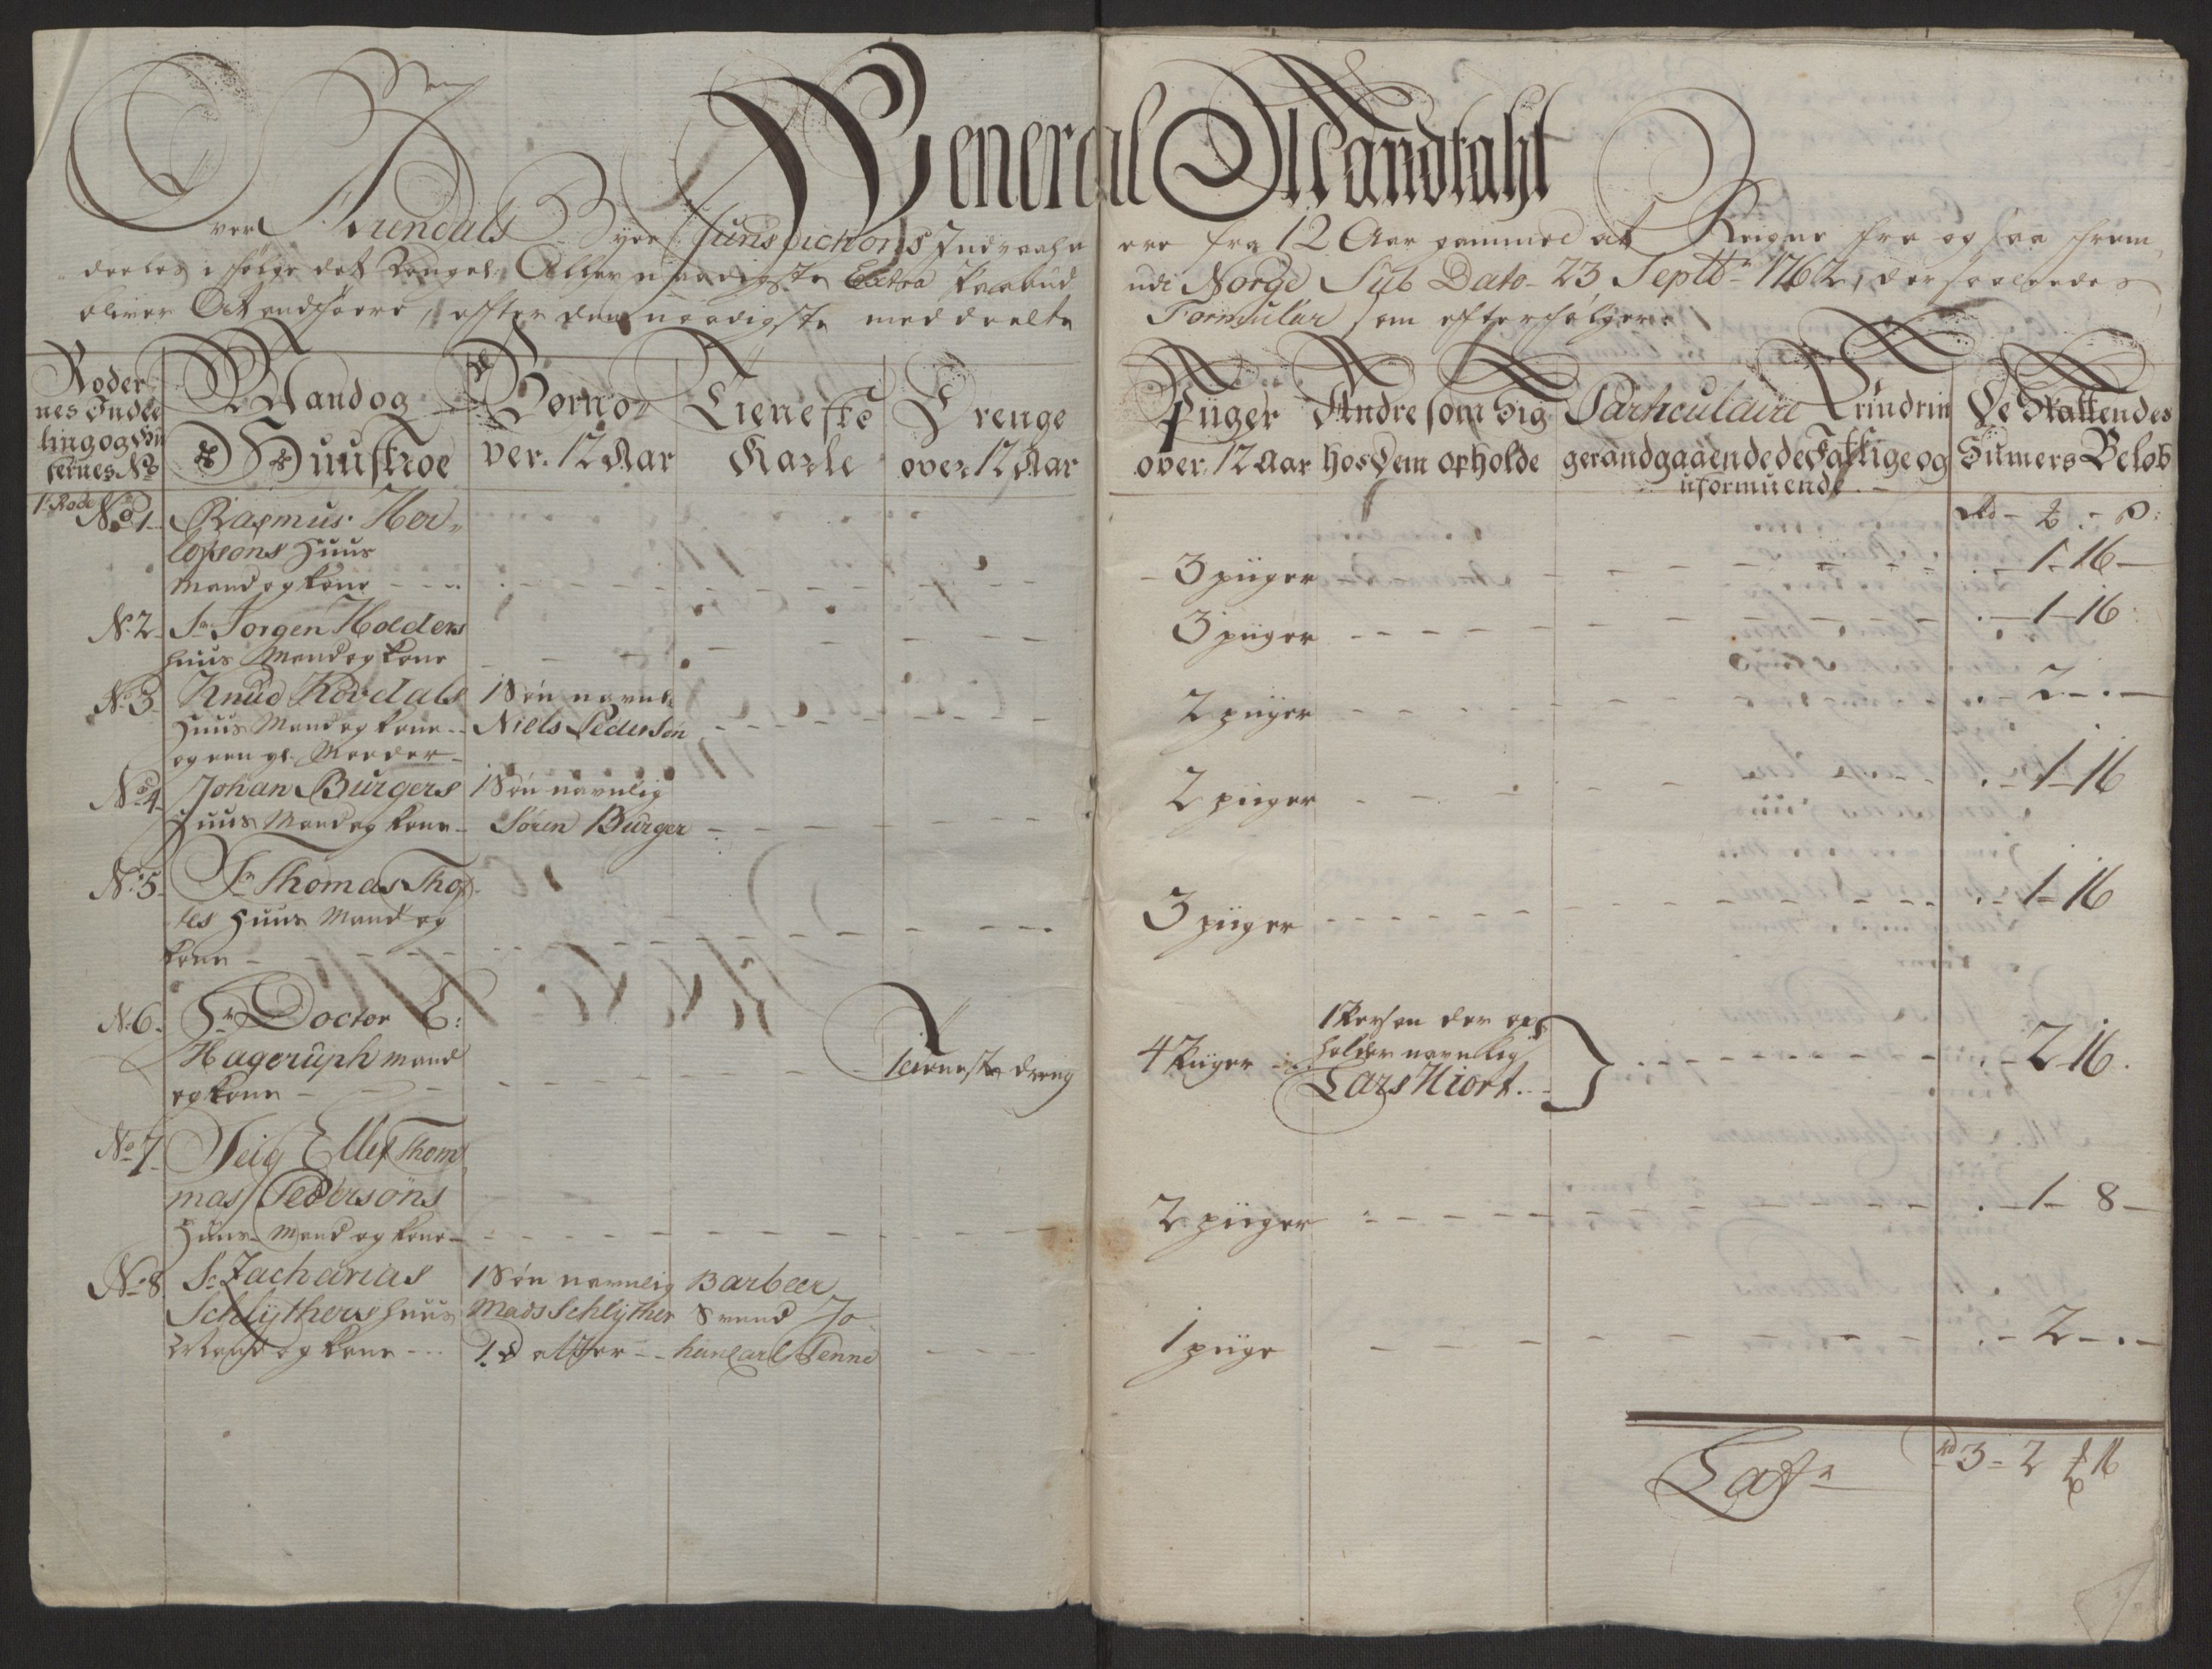 General Mandtahl
Over Arendals Byes Jurisdictions Indvaahnere fra 12 Aar gammel at Reigne fra og saa frem
deeles i følge det Kongel. Allernaadigste Extra Paabud udi Norge Sub Dato 23 Septbr 1762, der saaledes
bliver At andføere, efter den naadigste meddeelte Formular som efterfølger:
Roder
nes Indee
ling og Hu
sernes No
Mand og
Huustroe
Børn o
ver. 12 Aar
Tieneste
Karle
Drenge
over 12 Aar
Piiger
over 12 Aar
Andre som Sig
hos Dem opholde
Particulaire Erindrin
ger andgaaende de Fattige og
uformuende
De Skattendes
Sumers Beløb
1. Rode
Rd - - ß:
No 1
Rasmus Her-
lofsøns Huus
Mand og Kone
3 piiger
1 - 16
No 2
Sr. Jørgen Holders
huus Mand og Kone
3 piiger
1 - 16
No 3
Knud Rørdals
Huus Mand og Kone
og een gl. Moeder
1 Søn navnl.
Niels Pedersøn
2 piiger
2 -
No 4
Johan Burgers
Huus Mand og Kone
1 Søn navnlig
Søren Burger
2 piiger
1 - 16
No 5
Sr. Thomas Thof-
tes Huus Mand og
Kone
3 piiger
1 - 16
No 6
Hr. Doctor E:
Hagerüph mand
og Kone
1 tieneste dreng
4 Piiger
1 Person der op-
holder navnlig
Lars Hiort.
2 - 16
No 7
Seig Ellef Thom
mas Pedersøns
Huus Mand og Kone
2 piiger
1 - 8
No 8
Sr. Zacharias
Schlÿthers huus
Mand og Kone
1 Søn navnlig
Mads Schlÿther
1 Datter
Barbeer
Svend Jo
han Carl Penne
1 piige
2 -
Latr
rd 3 - 2 16